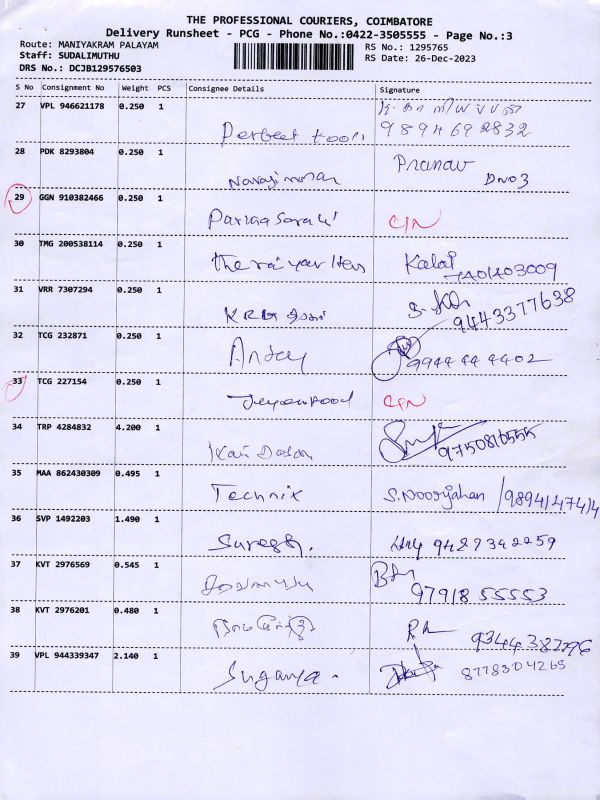 THE PROFESSIONAL COURIERS, COIMBATORE
Delivery Runsheet - PCG - Phone No.:0422-3505555 - Page No.:3
Route: MANIYAKRAM PALAYAM
RS No.: 1295765
Staff: SUDALIMUTHU
RS Date: 26-Dec-2023
DRS No.: DCJB129576503
S No Consignment No Weight PCS Consignee Details Signature
27 VPL 946621178 0.250 1
9894692832
28 PDK 8293804 0.250 1 Pranav
DNO3
29 GGN 910382466 0.250 1
C/N
30 TMG 200538114 0.250 1
Kalai
7401403009
31 VRR 7307294 0.250 1
KRG
9443377638
32 TCG 232871 0.250 1
9944444402
33 TCG 227154 0.250 1
C/N
34 TRP 4284832 4.200 1
9750810555
35 MAA 862430309 0.495 1
Technix S.Noorjahan /9894147414
36 SVP 1492203 1.490 1
Suresh. 9489342259
37 KVT 2976569 0.545 1
9791855553
38 KVT 2976201 0.480 1
9344387296
39 VPL 944339347 2.140 1
Suganya. 8778304265